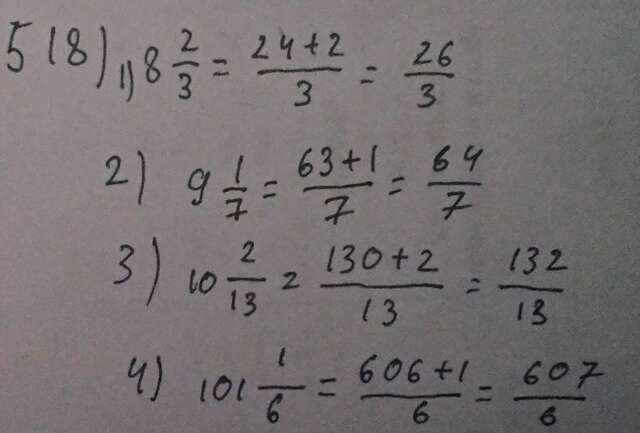 518) 1) 8 2/3 = (24+2)/3 = 26/3
2) 9 1/7 = (63+1)/7 = 64/7
3) 10 2/13 = (130+2)/13 = 132/13
4) 101 1/6 = (606+1)/6 = 607/6